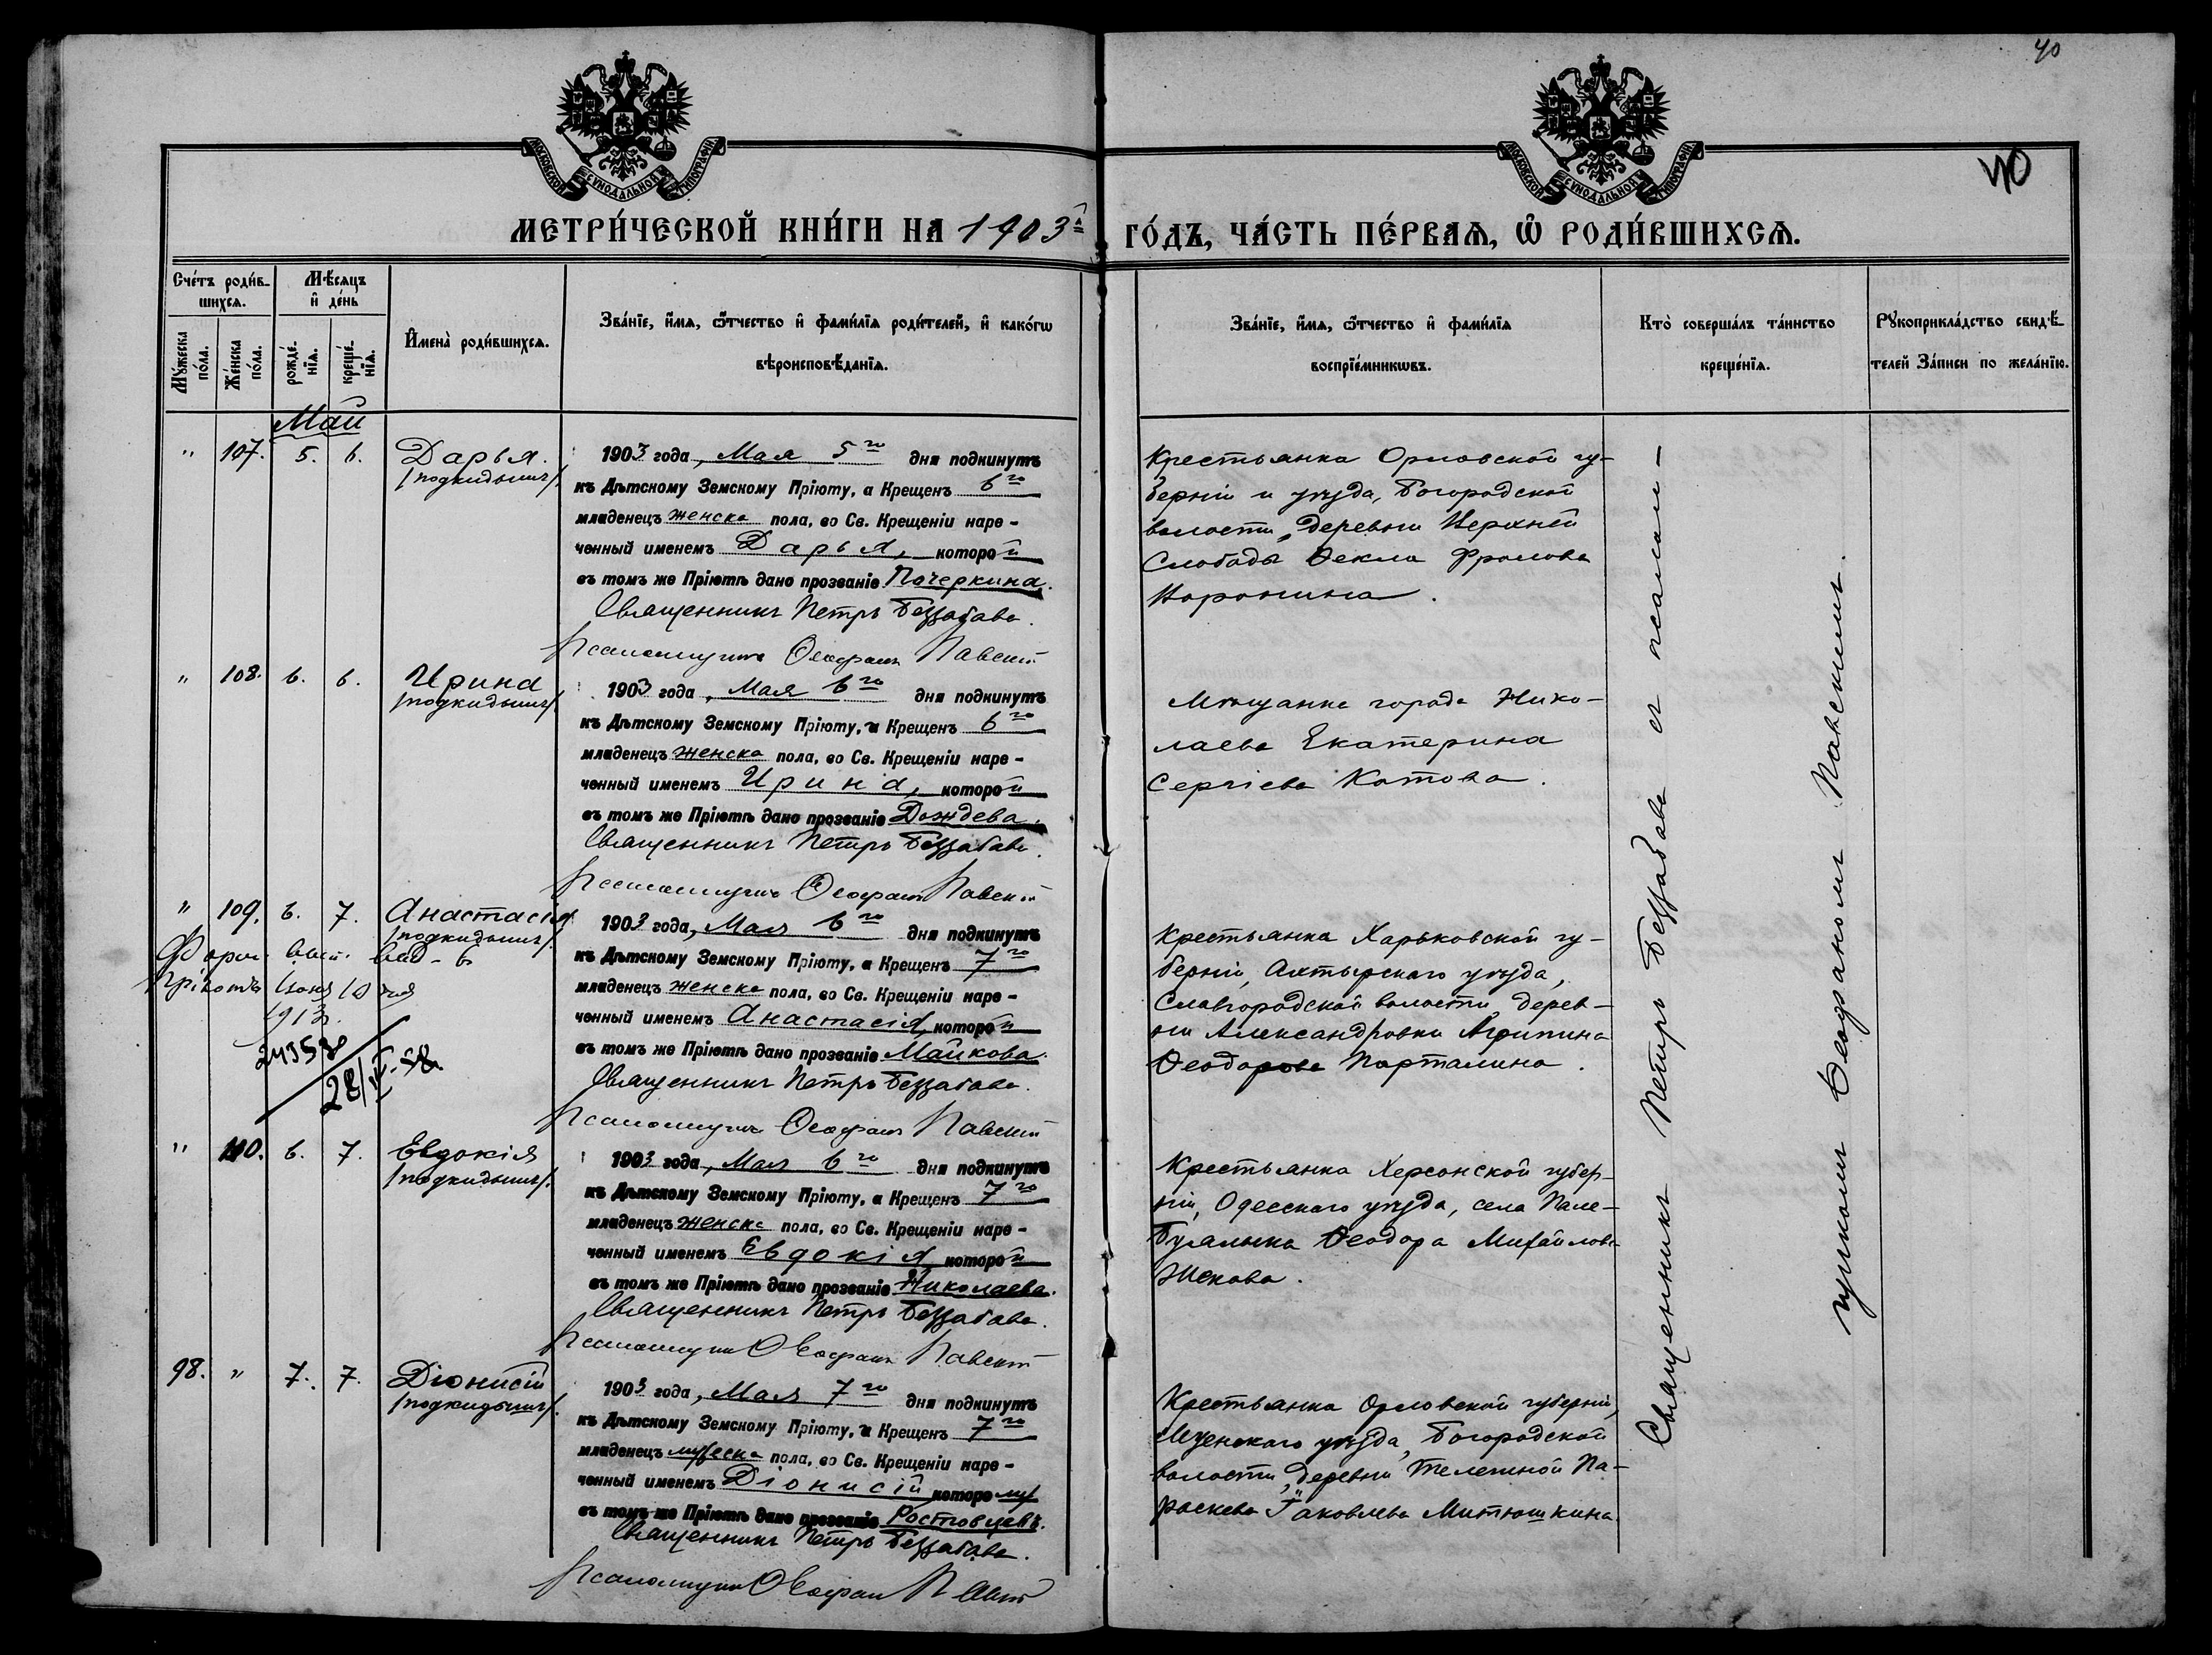 40
МОСКОВСКОЙ СѴНОДАЛЬНОЙ ТИПОГРАФІИ
МОСКОВСКОЙ СѴНОДАЛЬНОЙ ТИПОГРАФІИ
40
МЕТРИ́ЧЕСКОЙ КНИ́ГИ НА 1903й ГО́ДЪ, ЧА́СТЬ ПЕ́РВАѦ, Ѡ РОДИ́ВШИХСѦ.
Сче́тъ роди́вшихсѧ.
Мѣ́сяцъ и҆ де́нь
Мꙋ́жеска по́ла.
Же́нска по́ла.
рожде́нїѧ.
креще́нїѧ.
И҆мена̀ роди́вшихсѧ.
Зва́нїе, и҆́мѧ, ѻ҆́тчество и҆ фами́лїѧ роди́телей, и҆ како́гѡ
вѣроисповѣ́данїѧ.
Зва́нїе, и҆́мѧ, ѻ҆́тчество и҆ фами́лїѧ
воспрїе́мникѡвъ.
Кто̀ соверша́лъ та́инство
креще́нїѧ.
Рꙋкоприкла́дство свидѣ́-
телей За́писи по жела́нїю.
Май
" 107. 5. 6. Дарья.
/подкидышъ/.
1903 года, Мая 5го дня подкинутъ
къ Дѣтскому Земскому Пріюту, а Крещенъ 6го
младенецъ женска пола, во Св. Крещеніи наре-
ченный именемъ Дарья, которой
въ томъ же Пріютѣ дано прозваніе Почеркина.
Священникъ Петръ Беззабава.
Псаломщикъ Ѳеофанъ Павскій
Крестьянка Орловской гу-
берніи и уѣзда, Богородской
волости, деревни Верхней
Слободы Ѳекла Фролова
Воронина.
" 108. 6. 6. Ирина
/подкидышъ/.
1903 года, Мая 6го дня подкинутъ
къ Дѣтскому Земскому Пріюту, а Крещенъ 6го
младенецъ женска пола, во Св. Крещеніи наре-
ченный именемъ Ирина, которой
въ томъ же Пріютѣ дано прозваніе Дождева.
Священникъ Петръ Беззабава.
Псаломщикъ Ѳеофанъ Павскій
Мѣщанка города Нико-
лаева Екатерина
Сергіева Котова.
" 109. 6. 7. Анастасія
/подкидышъ/.
Пріютъ
1913
24358
28/
1903 года, Мая 6го дня подкинутъ
къ Дѣтскому Земскому Пріюту, а Крещенъ 7го
младенецъ женска пола, во Св. Крещеніи наре-
ченный именемъ Анастасія, которой
въ томъ же Пріютѣ дано прозваніе Майкова.
Священникъ Петръ Беззабава.
Псаломщикъ Ѳеофанъ Павскій
Крестьянка Харьковской гу-
берніи, Ахтырскаго уѣзда,
Славгородской волости, дерев-
ни Александровки Агрипина
Ѳеодорова Порталина.
" 110. 6. 7. Евдокія
/подкидышъ/.
1903 года, Мая 6го дня подкинутъ
къ Дѣтскому Земскому Пріюту, а Крещенъ 7го
младенецъ женска пола, во Св. Крещеніи наре-
ченный именемъ Евдокія которой
въ томъ же Пріютѣ дано прозваніе Николаева.
Священникъ Петръ Беззабава.
Псаломщикъ Ѳеофанъ Павскій
Крестьянка Херсонской губер-
ніи, Одесскаго уѣзда, села
Ѳеодора Михайлова
98. " 7. 7. Діонисій
/подкидышъ/.
1903 года, Мая 7го дня подкинутъ
къ Дѣтскому Земскому Пріюту, а Крещенъ 7го
младенецъ мужеска пола, во Св. Крещеніи наре-
ченный именемъ Діонисій которому
въ томъ же Пріютѣ дано прозваніе Ростовцевъ.
Священникъ Петръ Беззабава.
Псаломщикъ Ѳеофанъ Павскій
Крестьянка Орловской губерніи,
Мценскаго уѣзда, Богородской
волости, деревни Тележной Па-
раскева Іаковлева Митюшкина
Священникъ Петръ Беззабава съ псалом-
щикомъ Ѳеофаномъ Павскимъ.